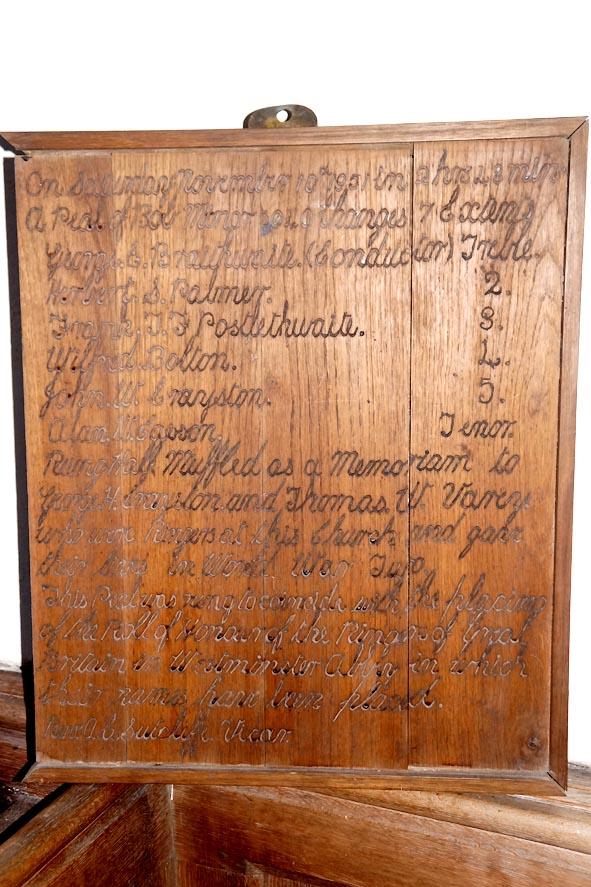 On Saturday November 10th 1951 in 2 hrs 48 min
A Peal of Bob Minor 5040 Changes 7 Extents
George E. Braithwaite. (Conductor) Treble.
Herbert. S. Palmer. 2.
T. F Postlethwaite. 3.
Wilfred. Bolton. 4.
John. W. Crayston. 5.
Alan Tenor.
Rung Half Muffled as a Memoriam to
George H. Crayston. and Thomas. W Varey
who were Ringers at this Church and gave
their lives in World War Two.
This Peal was rung to coincide with the placing
of the Roll of Honour of the Ringers of Great
Britain in Westminster Abbey in which
their names have been placed.
Sutcliffe Vicar.